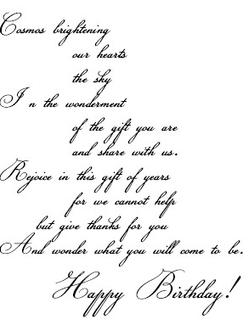 Cosmos brightening
our hearts
the sky
I n the wonderment
of the gift you are
and share with us.
Rejoice in this gift of years
for we cannot help
but give thanks for you
And wonder what you will come to be.
Happy Birthday!